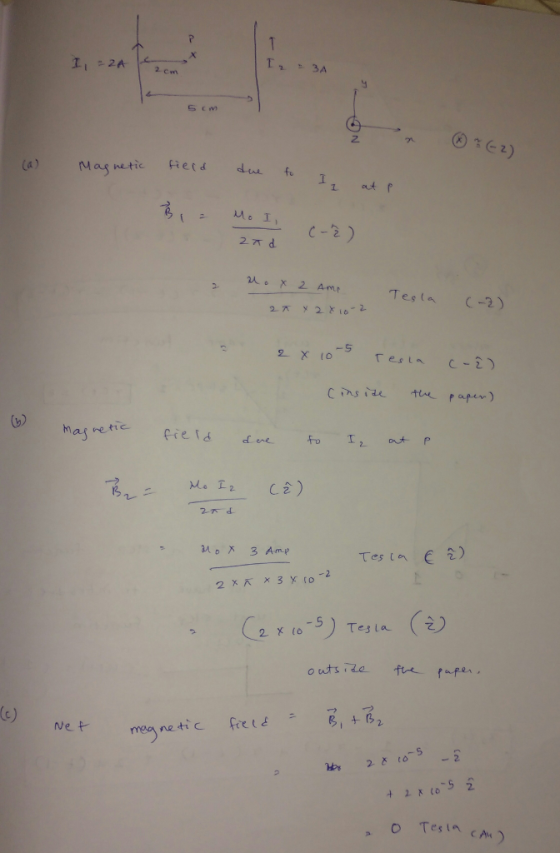 P
I₁ = 2A x I₂ = 3A
2cm
5cm
y
z x ⊗ ⇒ (-z)
(a) Magnetic field due to I₂ at P
B⃗₁ = μ₀ I₁ / 2πd (-ẑ)
= μ₀ × 2 Amp / 2π × 2 × 10⁻² Tesla (-ẑ)
= 2 × 10⁻⁵ Tesla (-ẑ)
(inside the paper)
(b) Magnetic field due to I₂ at P
B⃗₂ = μ₀ I₂ / 2πd (ẑ)
= μ₀ × 3 Amp / 2 × π × 3 × 10⁻² Tesla (ẑ)
= (2 × 10⁻⁵) Tesla (ẑ)
outside the paper.
(c) Net magnetic field = B⃗₁ + B⃗₂
= 2 × 10⁻⁵ -ẑ
+ 2 × 10⁻⁵ ẑ
= 0 Tesla (Au)